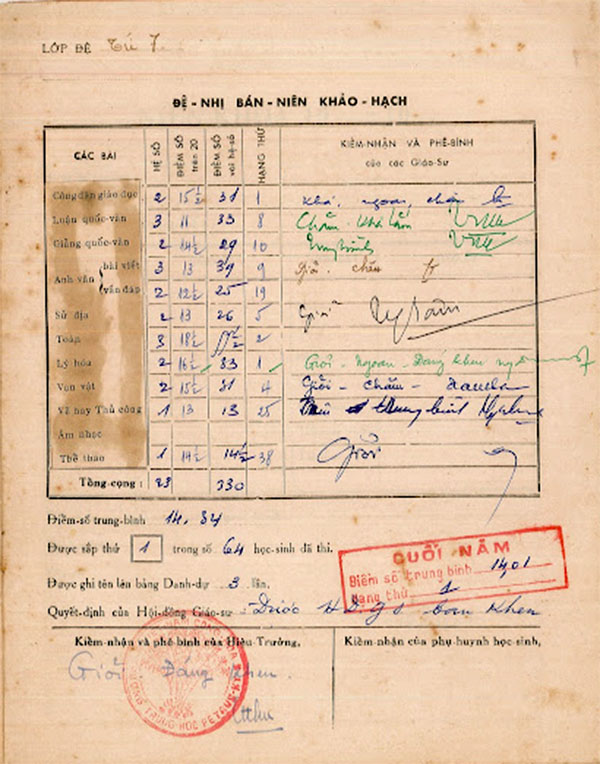 LỚP ĐỆ Tứ 7
ĐỆ - NHỊ BÁN - NIÊN KHẢO - HẠCH
CÁC BÀI HỆ SỐ ĐIỂM SỐ trên 20 ĐIỂM SỐ với hệ-số HẠNG THỨ KIỂM-NHẬN VÀ PHÊ-BÌNH của các Giáo-Sư
Công dân giáo dục 2 15½ 31 1 Khá, ngoan, chăm
Luận quốc-văn 3 11 33 8 Chăm. Khá lắm
Giảng quốc-văn 2 14½ 29 10 Trung bình
Anh văn bài viết 3 13 39 9 Giỏi. chăm
vấn đáp 2 12½ 25 19
Sử địa 2 13 26 5 Giỏi
Toán 3 18½ 2
Lý hóa 2 16½ 33 1 Giỏi - Ngoan - Đáng khen
Vạn vật 2 15½ 31 4 Giỏi - chăm -
Vẽ hay Thủ công 1 13 13 25 trung bình
Âm nhạc
Thể thao 1 14½ 14½ 38 Giỏi
Tổng-cộng : 23 330
Điểm-số trung-bình 14,34
Được sắp thứ 1 trong số 64 học-sinh đã thi.
Được ghi tên lên bảng Danh-dự 3 lần.
CUỐI NĂM
Điểm số trung bình 14,01
Hạng thứ 1
Quyết-định của Hội-đồng Giáo-sư Được H.D.G.S ban khen
Kiểm-nhận và phê-bình của Hiệu-Trưởng,
Kiểm-nhận của phụ-huynh học-sinh,
Giỏi. Đáng khen.
TRƯỜNG TRUNG-HỌC PETRUS-KÝ